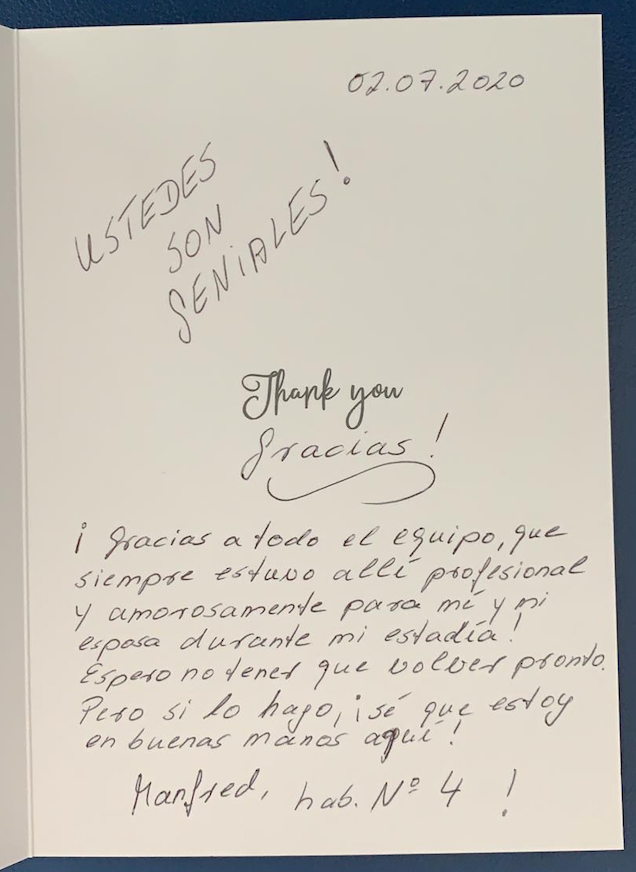 02.07.2020
USTEDES
SON
GENiALES!
Thank you
Gracias!
¡Gracias a todo el equipo, que
siempre estuvo allí profesional
y amorosamente para mí y mi
esposa durante mi estadía!
Espero no tener que volver pronto.
Pero si lo hago, ¡sé que estoy
en buenas manos aquí!
Manfred, hab. Nº 4 !